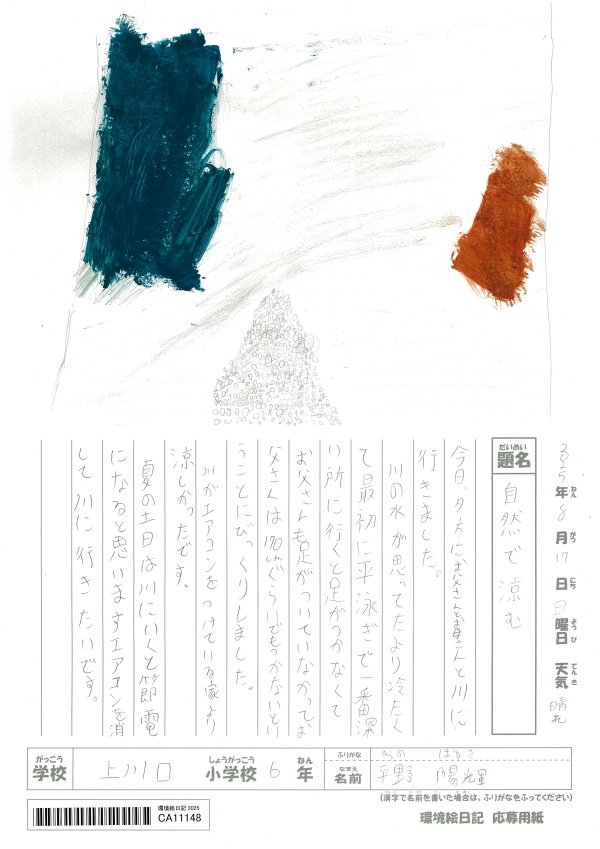 2025年ねん8月がつ17日にち日曜日ようび天気てんき晴れ
だいめい
題名 自然で涼む
今日、夕方にお父さんとお母さんと川に
行きました。
川の水が思ってたより冷たく
て最初に平泳ぎで一番深
い所に行くと足がつかなくて
お父さんも足がついていなかってお
父さんは170cmぐらいでもつかないとい
うことにびっくりしました。
川がエアコンをつけている家より
涼しかったです。
夏の土日は川にいくと節電
になると思いますエアコンを消
して川に行きたいです。
がっこう しょうがっこう ねん ふりがな
学校 上川口 小学校 6 年 なまえ 名前 平野 陽輝
(漢字で名前を書いた場合は、ふりがなをふってください)
環境絵日記 応募用紙
環境絵日記 2025
CA11148